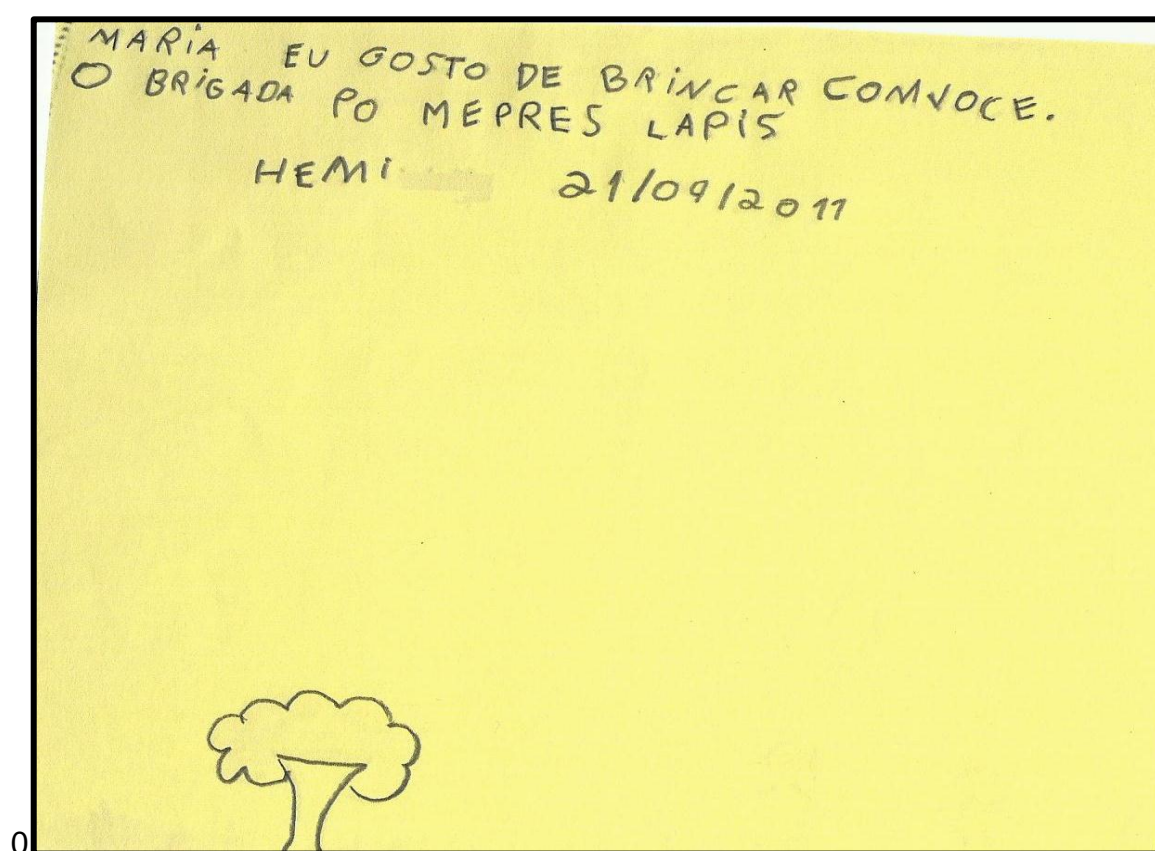 MARIA EU GOSTO DE BRINCAR COMVOCE.
O BRIGADA PO MEPRES LAPIS
HEMI 21/09/2011
0